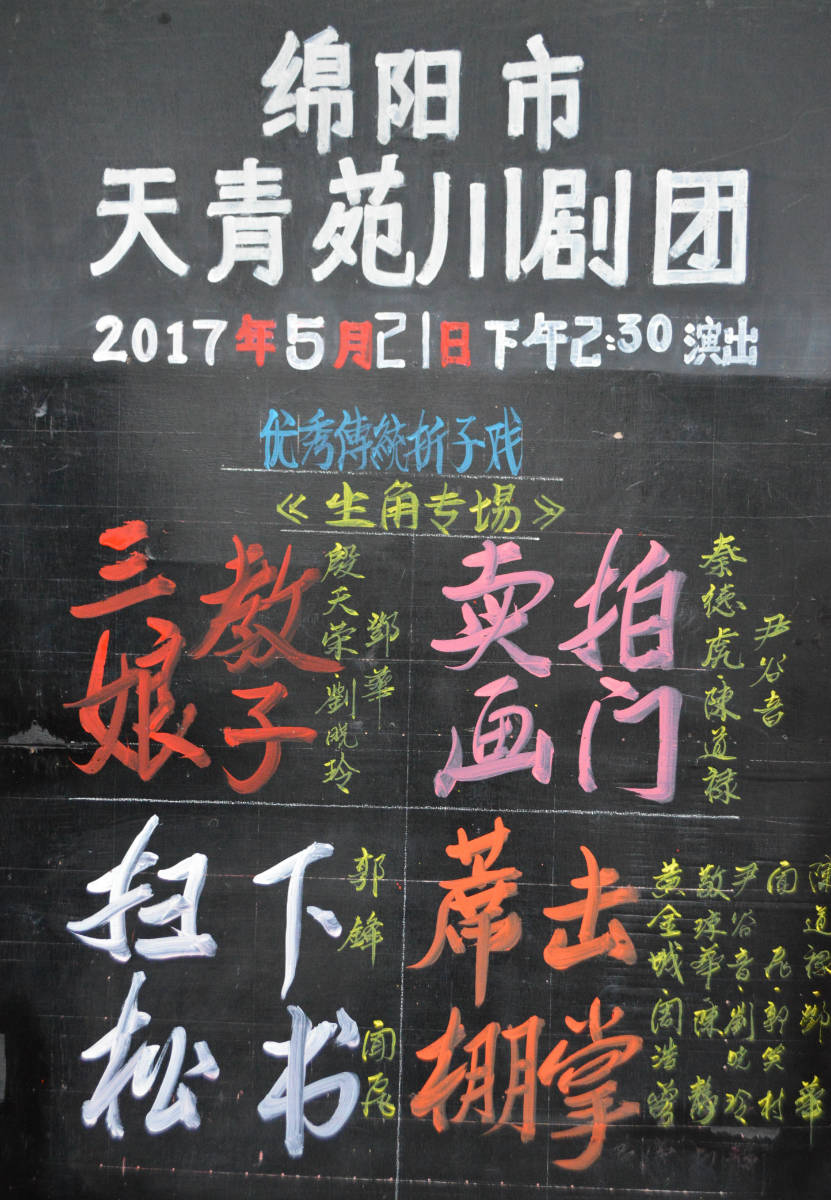 绵阳市
天青苑川剧团
2017年5月21日下午2:30演出
优秀傳統折子戏
《生角专場》
三娘
教子
殷天荣·劉晓玲
鄧華
卖画
拍门
秦德虎·陳道禄
尹谷音
扫松
下书
郭鋒
闻危
蓆棚
击掌
黄金城
敬琼華
尹谷音·劉晓玲
陳道禄·鄧華
周浩
陳靜
郭笑村